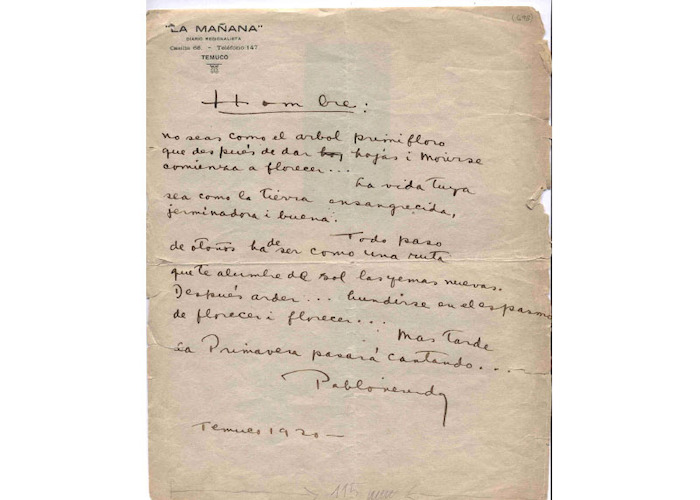 "LA MAÑANA"
DIARIO REGIONALISTA
Casilla 68 - Teléfono 147
TEMUCO
Hombre:
no seas como el arbol primifloro
que despues de dar hojas i morirse
comienza a florecer...
La vida tuya
sea como la tierra ensangrecida,
jerminadora i buena.
Todo paso
de otoños ha de ser como una ruta
que te alumbre de sol las yemas nuevas.
Después arder... hundirse en el espasmo
de florecer i florecer...
Mas tarde
la Primavera pasará cantando....
Pablo neruda
Temuco 1920-